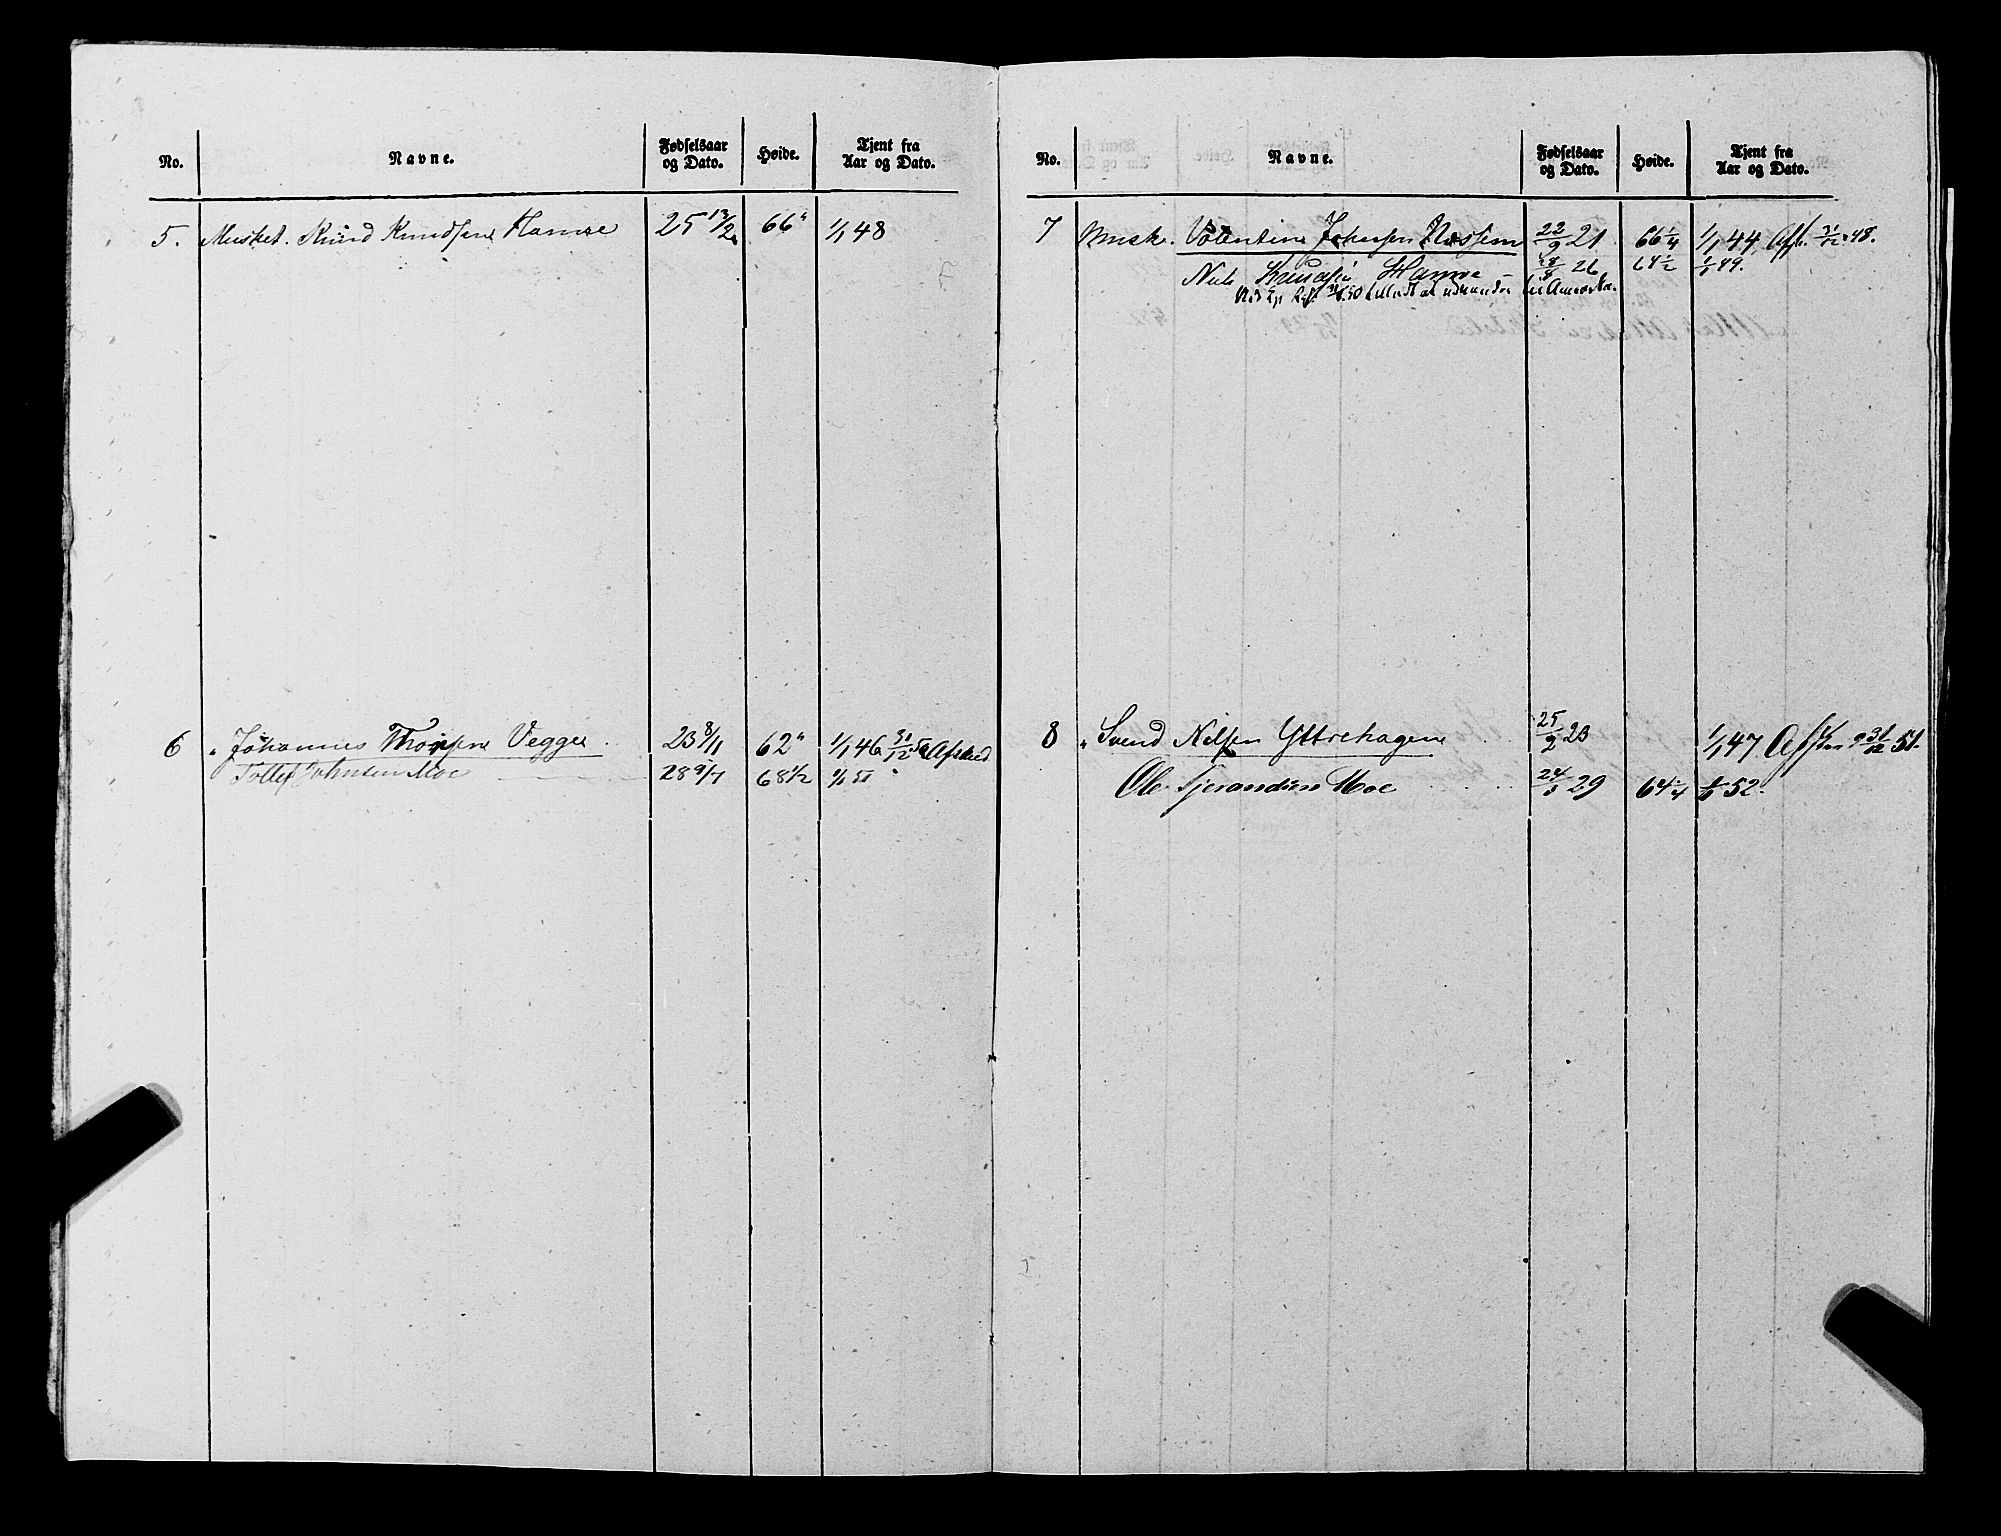 No. Navne. Fødselsaar og Dato. Høide. Tjent fra Aar og Dato.
5. Musket. Knud Knudsen Hamre 25 13/2 66" 1/1 48
6 " Johannes Vegge 23 8/11 62" 1/1 46 31/12 Afsked
Tollef Johnsen Moe 28 9/7 68 1/2 1/1 51
No. Navne. Fødselsaar og Dato. Høide. Tjent fra Aar og Dato.
7 Musk. Valentin Johnsen Næssem 22/9 21 66 1/4 1/1 44 Afsk. 31/12 48.
Niels Knudsen Hamre 26 64 1/2 1/1 49.
50 tilladt at udvandre til Amerika.
8 " Svend Nilsen Yttrehagen 25/2 23 1/1 47 31/12 51.
Ole Tjerandsen Moe 24/5 29 64 1/4 1/1 52.